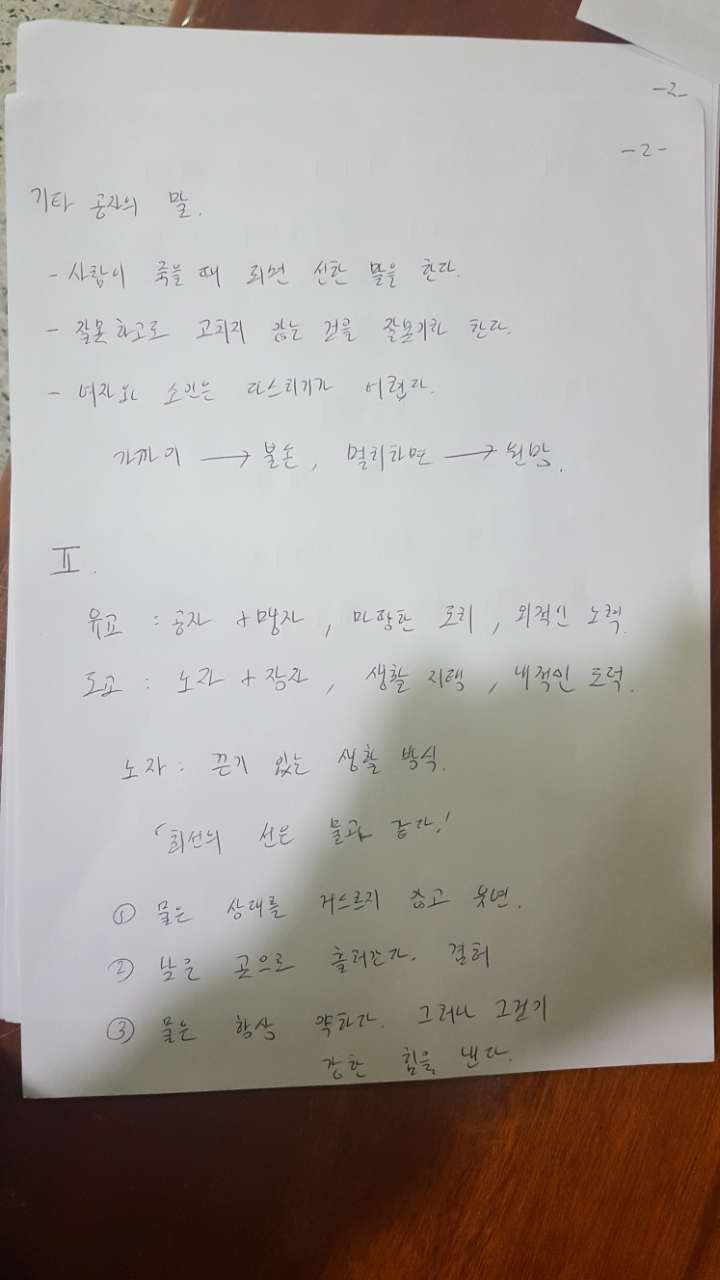 -2-
-2-
기타 공자의 말.
- 사람이 죽을 때 되면 선한 말을 한다.
- 잘못하고로 고치지 않는 것을 잘못이라 한다.
- 여자와 소인는 다스리기가 어렵다.
가까이 → 불손, 멀리하면 → 원망.
Ⅱ.
유교 : 공자 + 맹자, 마땅한 도리, 외적인 노력.
도교 : 노자 + 장자, 생활 지혜, 내적인 도덕.
노자 : 끈기 있는 생활 방식.
'최선의 선은 물과 같다.'
① 물은 상대를 거스르지 않고
② 낮은 곳으로 흘러간다. 겸허
③ 물은 항상 약하다. 그러나 그런기
강한 힘을 낸다.